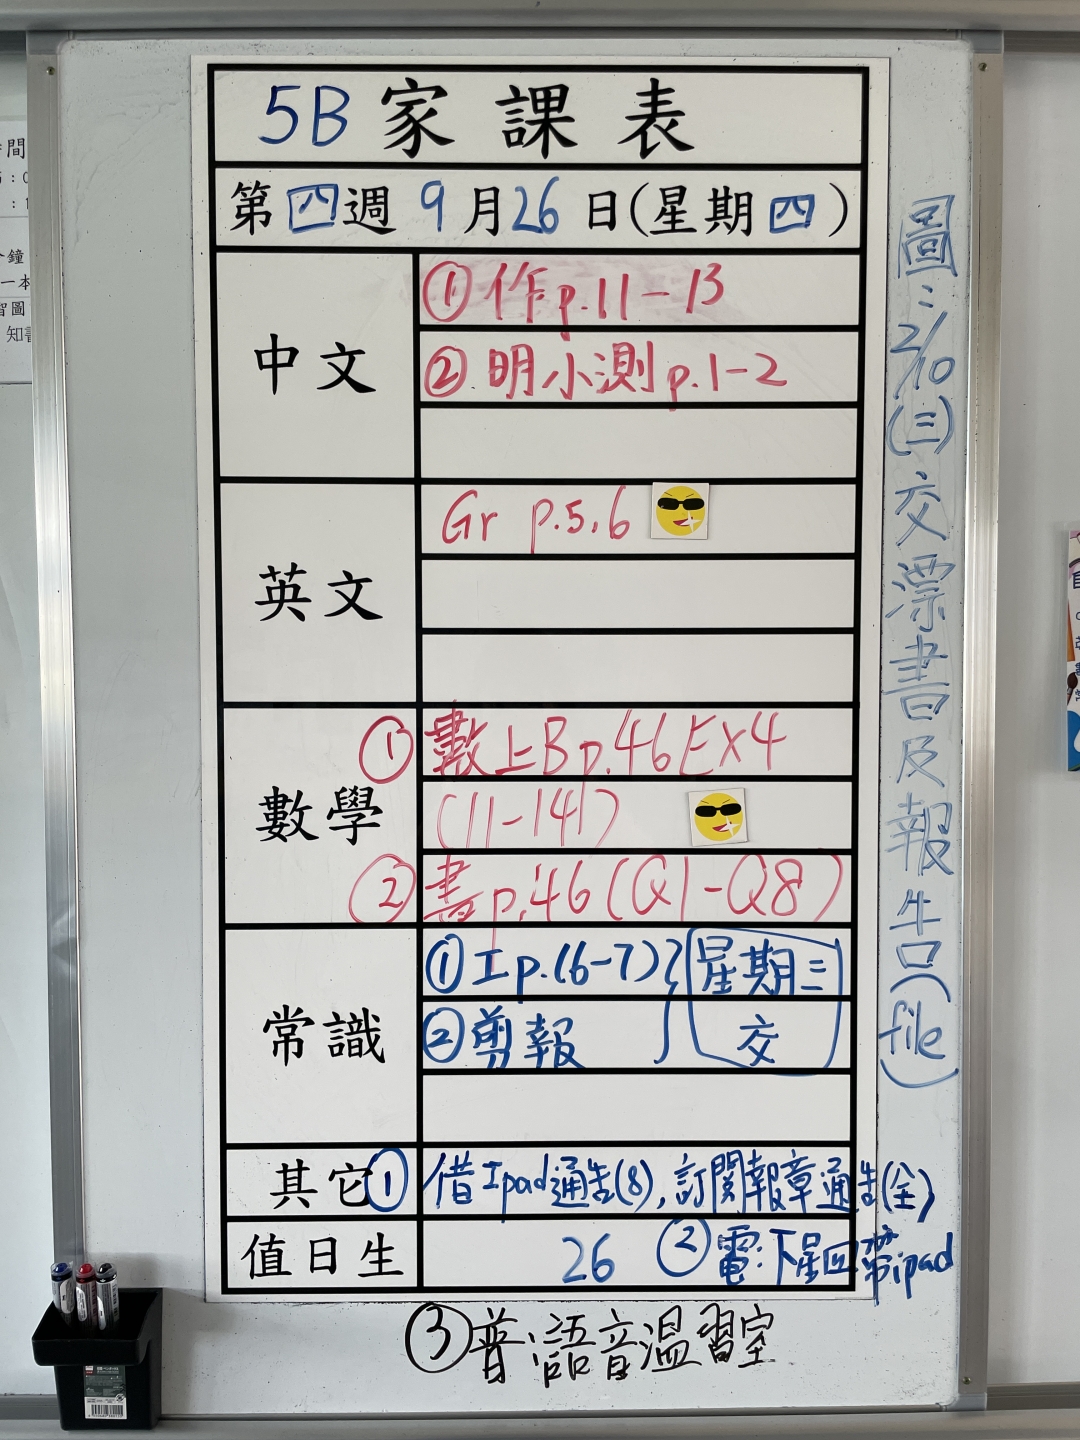 5B 家課表
第四週 9月26日(星期四)
中文
①作p.11-13
②明小測p.1-2
英文
Gr p.5,6
數學
①數上B p.46 Ex4
(11-14)
②書p.46(Q1-Q8)
常識
①工p.(6-7)
②剪報
星期三
交
其它
①借Ipad通告(8),訂閱報章通告(全)
值日生
26
②電:下星四帶ipad
③普:語音溫習室
圖:2/10(三)交漂書及報告(file)
間
鐘
一本
圖
知